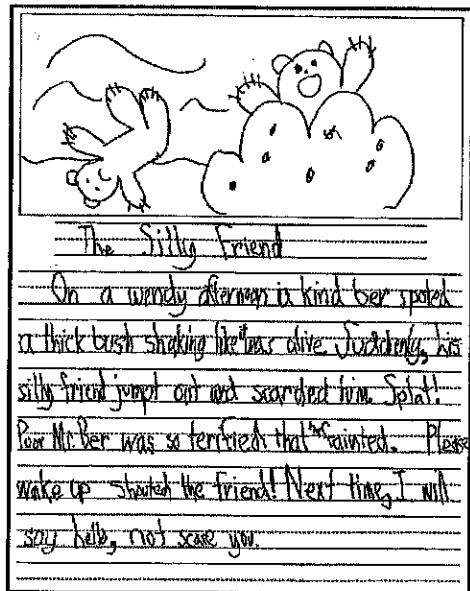 The Silly Friend
On a wendy afternoon a kind ber spoted
a thick bush shaking like it was alive. Suddenly, his
silly friend jumpt out and scarded him. Splat!
Poor Mr. Ber was so terrified that he fainted. Please
wake up shouted the friend! Next time, I will
say hello, not scare you.